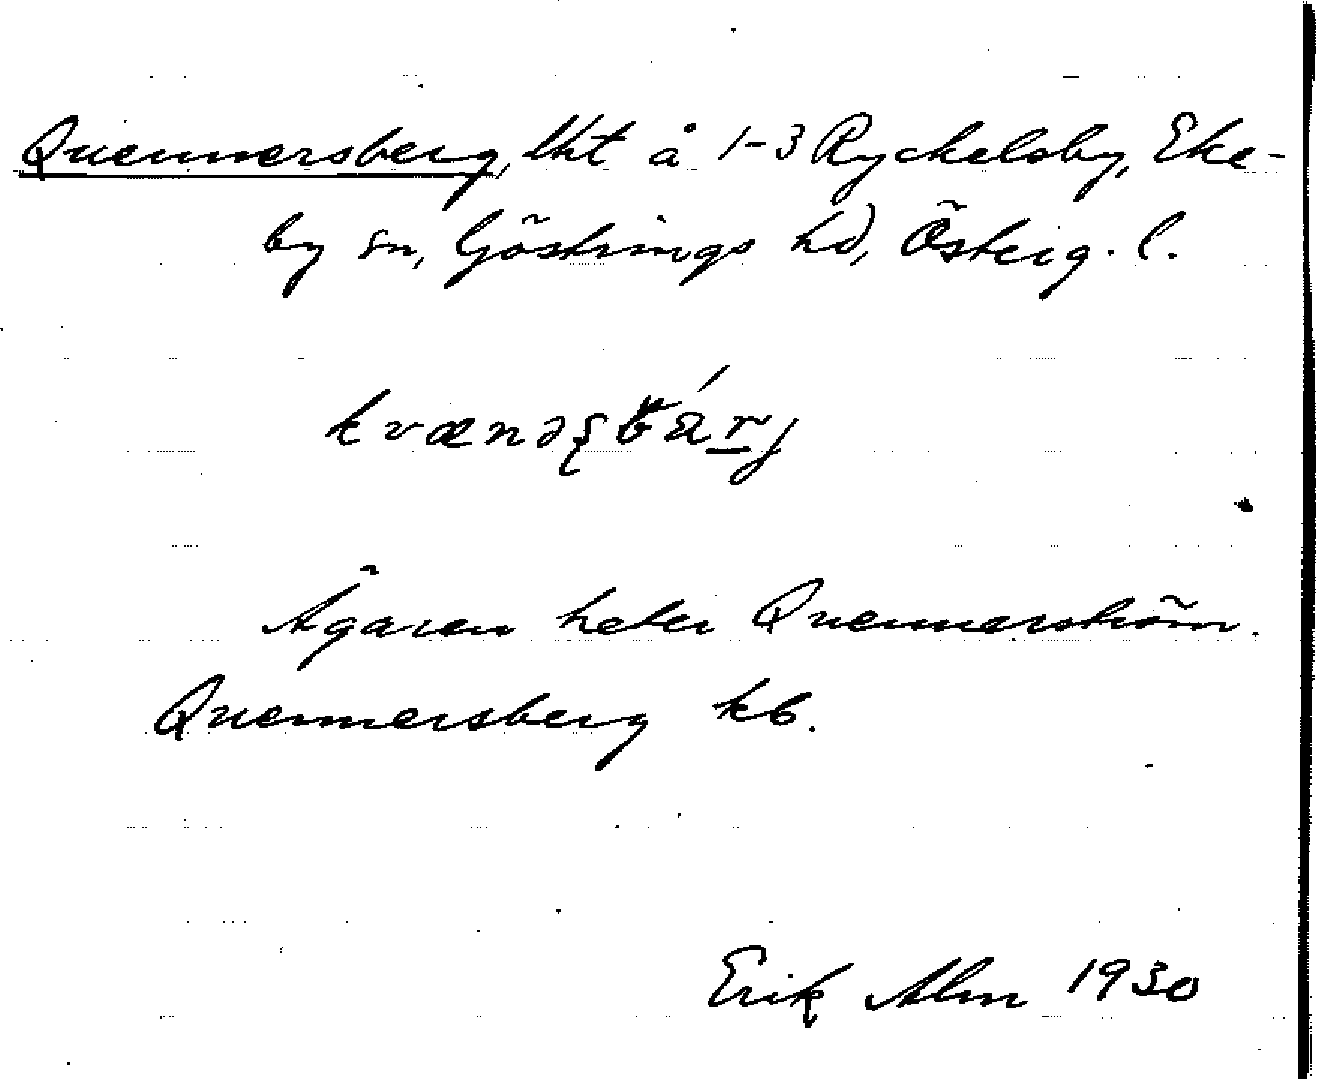 Quennersberg, lht å 1-3 Ryckelsby, Eke-
by sn, Göstrings hd, Österg. l.
kvænəʂbærj
Ägaren heter Quennerström.
Quennersberg kb.
Erik Alm 1930